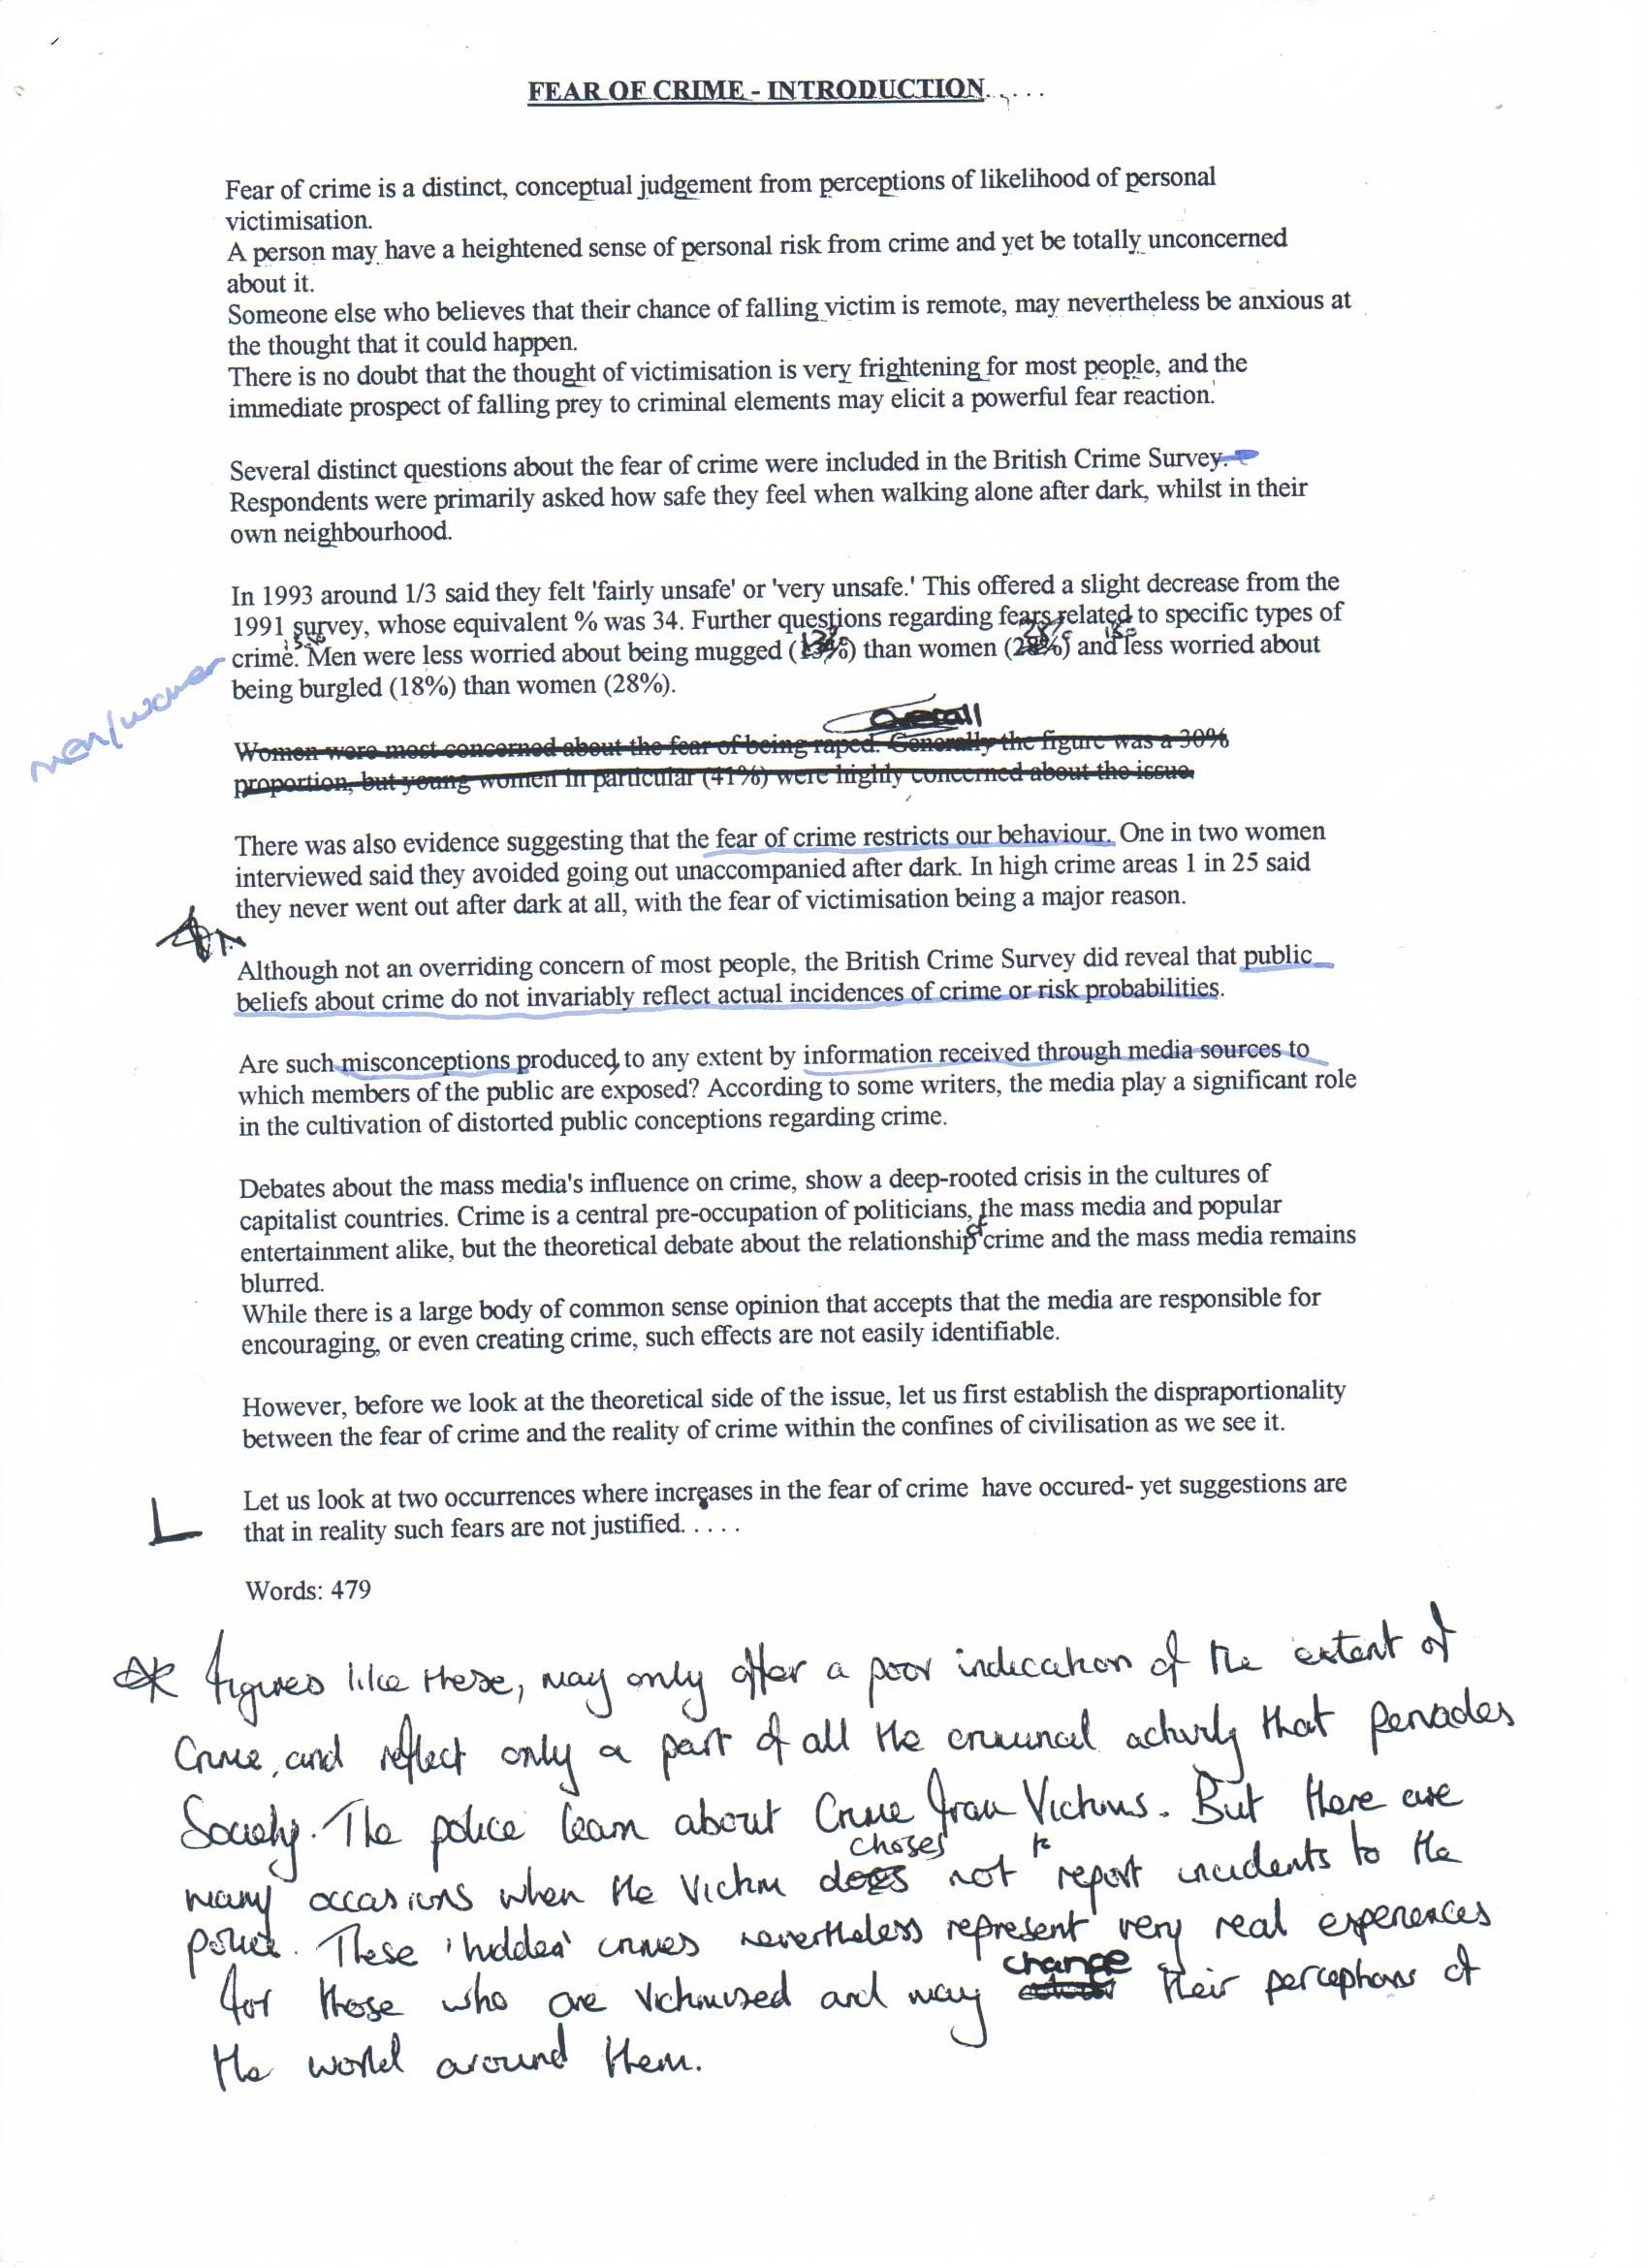 FEAR OF CRIME - INTRODUCTION.....
Fear of crime is a distinct, conceptual judgement from perceptions of likelihood of personal
victimisation.
A person may have a heightened sense of personal risk from crime and yet be totally unconcerned
about it.
Someone else who believes that their chance of falling victim is remote, may nevertheless be anxious at
the thought that it could happen.
There is no doubt that the thought of victimisation is very frightening for most people, and the
immediate prospect of falling prey to criminal elements may elicit a powerful fear reaction.
Several distinct questions about the fear of crime were included in the British Crime Survey.
Respondents were primarily asked how safe they feel when walking alone after dark, whilst in their
own neighbourhood.
In 1993 around 1/3 said they felt 'fairly unsafe' or 'very unsafe.' This offered a slight decrease from the
1991 survey, whose equivalent % was 34. Further questions regarding fears related to specific types of
crime. Men were less worried about being mugged ( ) than women ( ) and less worried about
being burgled (18%) than women (28%).
men/women
overall
Women were most concerned about the fear of being raped. Generally the figure was a 30%
proportion, but young women in particular (41%) were highly concerned about the issue.
There was also evidence suggesting that the fear of crime restricts our behaviour. One in two women
interviewed said they avoided going out unaccompanied after dark. In high crime areas 1 in 25 said
they never went out after dark at all, with the fear of victimisation being a major reason.
Although not an overriding concern of most people, the British Crime Survey did reveal that public
beliefs about crime do not invariably reflect actual incidences of crime or risk probabilities.
Are such misconceptions produced, to any extent by information received through media sources to
which members of the public are exposed? According to some writers, the media play a significant role
in the cultivation of distorted public conceptions regarding crime.
Debates about the mass media's influence on crime, show a deep-rooted crisis in the cultures of
capitalist countries. Crime is a central pre-occupation of politicians, the mass media and popular
entertainment alike, but the theoretical debate about the relationship of crime and the mass media remains
blurred.
While there is a large body of common sense opinion that accepts that the media are responsible for
encouraging, or even creating crime, such effects are not easily identifiable.
However, before we look at the theoretical side of the issue, let us first establish the dispraportionality
between the fear of crime and the reality of crime within the confines of civilisation as we see it.
Let us look at two occurrences where increases in the fear of crime have occured- yet suggestions are
that in reality such fears are not justified. . . . .
Words: 479
figures like these, may only offer a poor indication of the extent of
Crime, and reflect only a part of all the criminal activity that pervades
Society. The police learn about Crime from Victims. But there are
choses to
many occasions when the Victim does not report incidents to the
police. These 'hidden' crimes nevertheless represent very real experiences
change
for those who are victimised and may their perceptions of
the world around them.